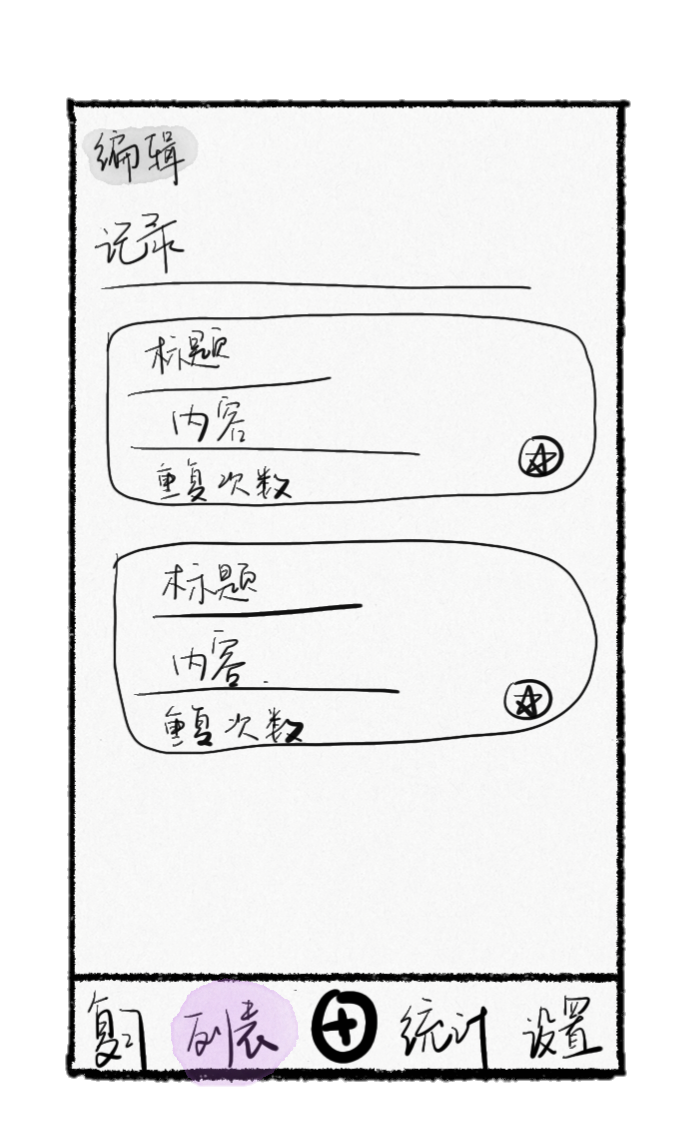 编辑
记录
标题
内容
重复次数
标题
内容
重复次数
复习 列表 统计 设置